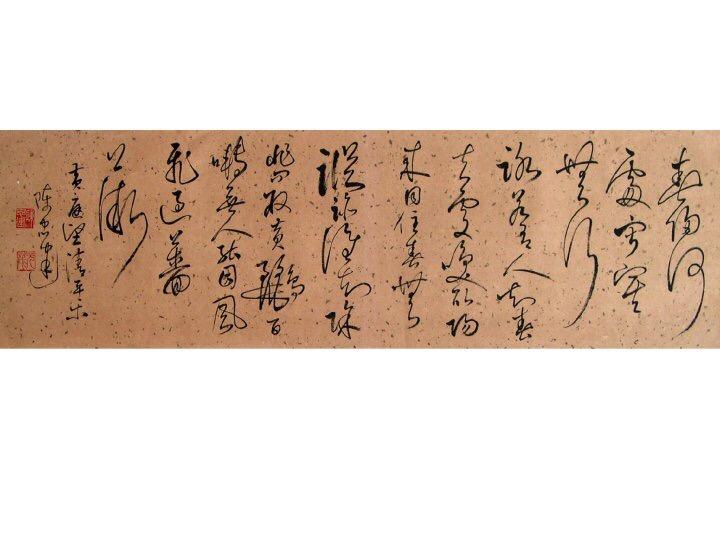 春歸何
處寂寞
無行
路若有人知春
去處喚取歸
來同住春無
蹤跡誰知除
非問取黃鸝百
囀無人能因風
飛過薔
薇
黃庭堅清平樂
陳忠建